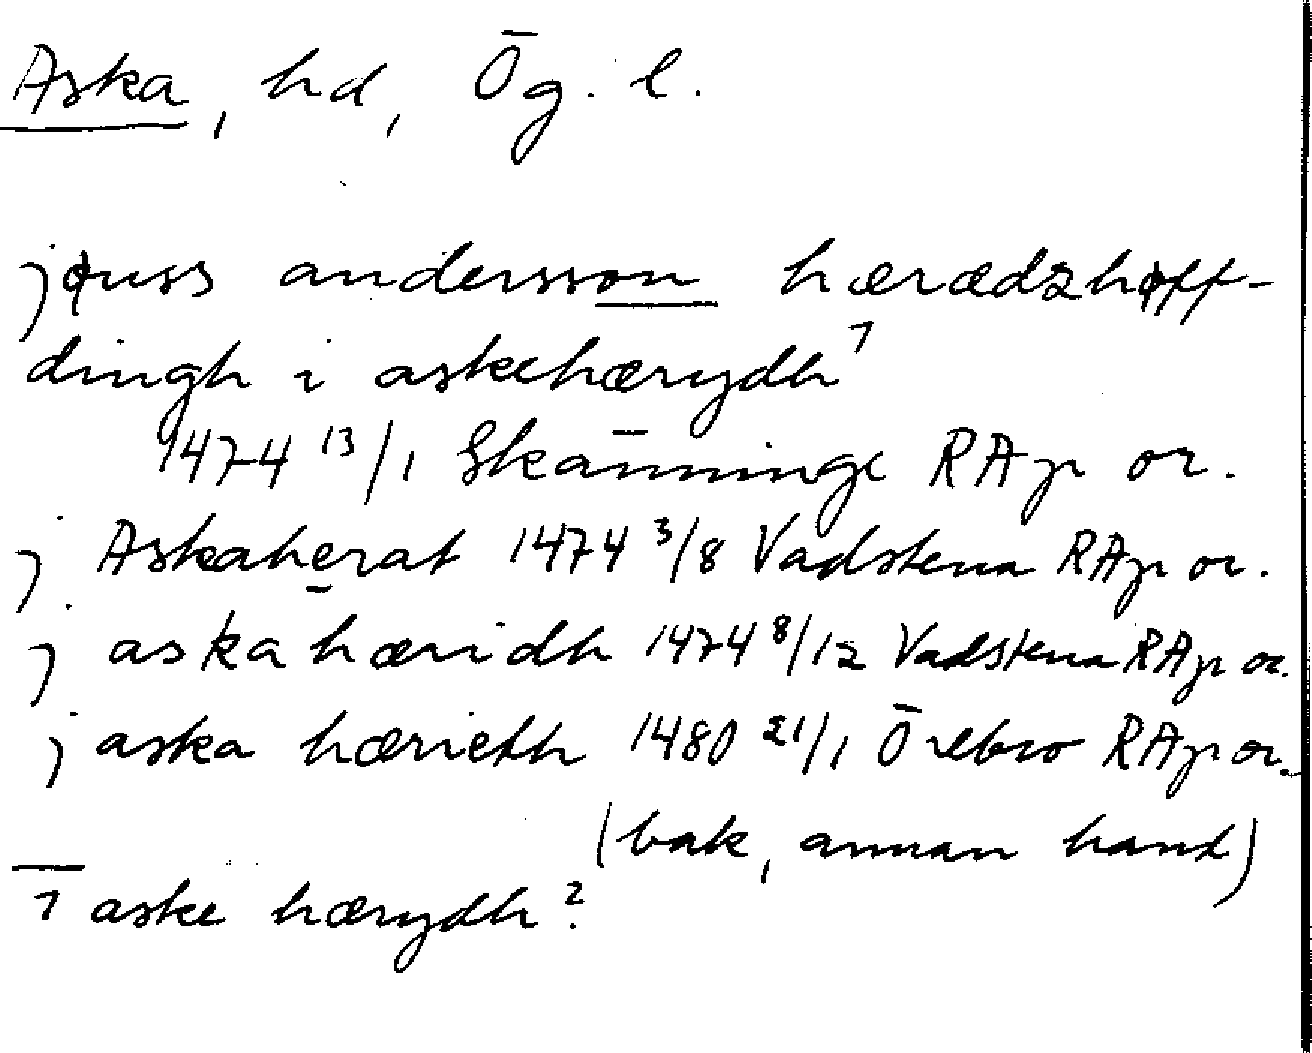 Aska, hd, Ög. l.
jønss andersson hærædzhøff-
dingh i askehærydh¹
1474 13/1 Skänninge RAp or.
j Askaherat 1474 3/8 Vadstena RAp or.
j aska hæridh 1474 8/12 Vadstena RAp or.
j aska hærieth 1480 21/1 Örebro RAp or.
(bak, annan hand)
1 aske hærydh?